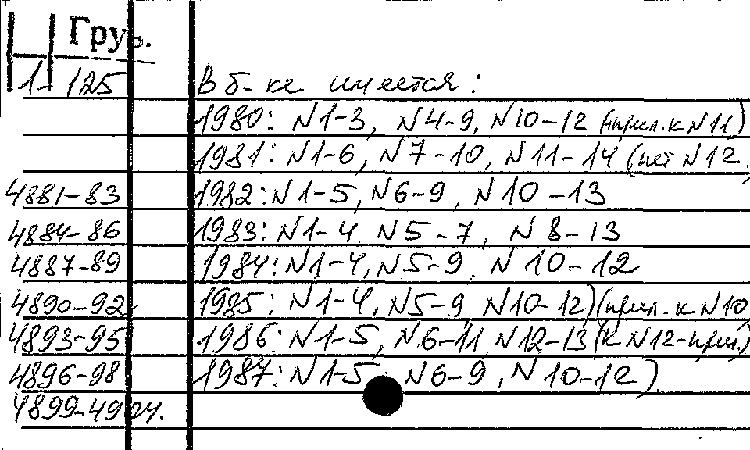 Груз.
1-125 В б-ке имеется:
1980: N1-3, N4-9, N10-12 (прил. к N11)
1981: N1-6, N7-10, N11-14 (нет N12
4881-83 1982: N1-5, N6-9, N10-13
4884-86 1983: N1-4 N5-7, N8-13
4887-89 1984: N1-4, N5-9 N10-12
4890-92 1985: N1-4, N5-9 N10-12) (прил. к N10
4893-95 1986: N1-5, N6-11 N12-13 (к N12-прил.)
4896-98 1987: N1-5 N6-9, N10-12)
4899-4904.